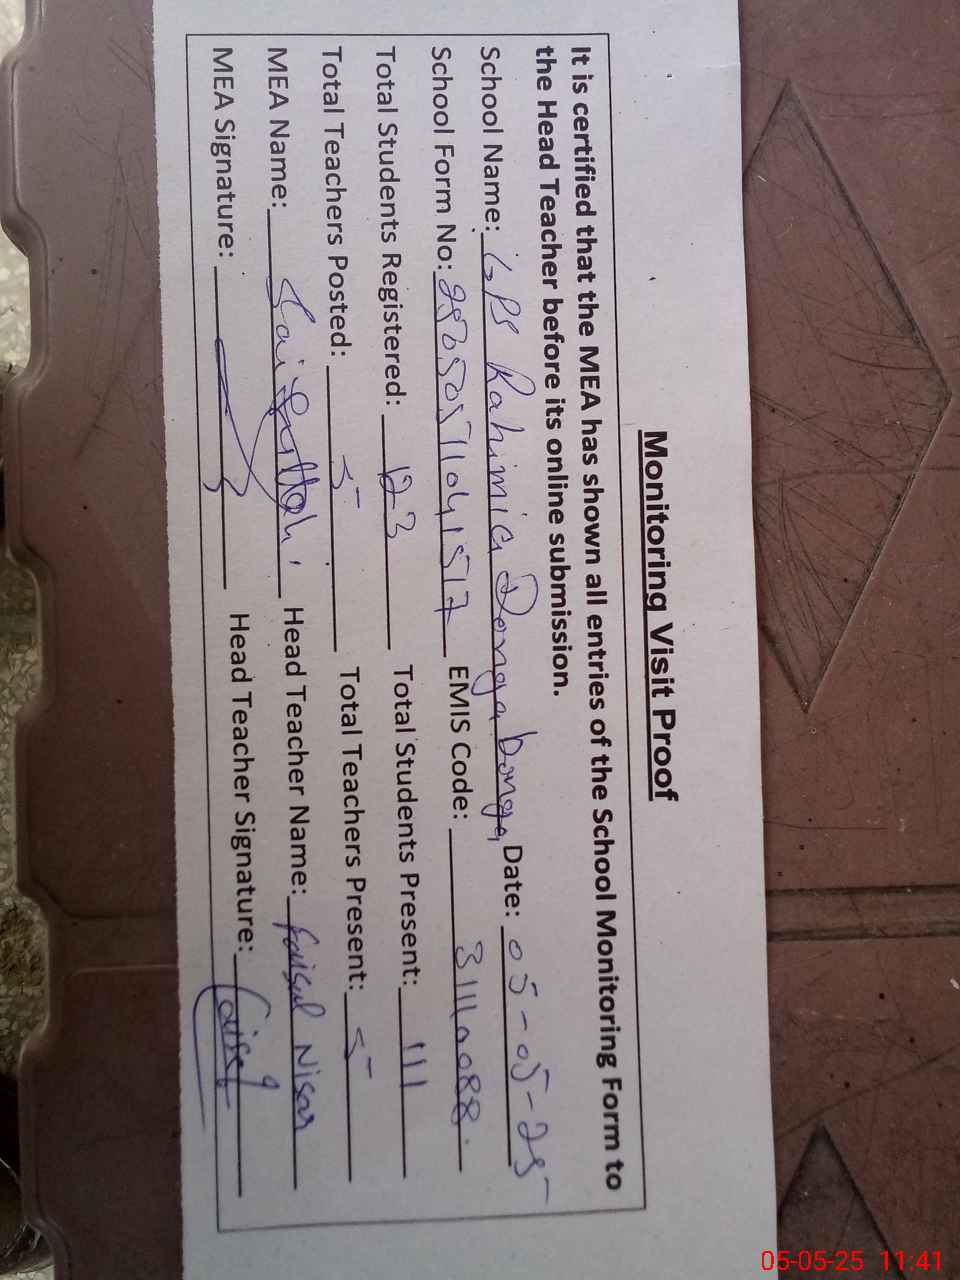 Monitoring Visit Proof
It is certified that the MEA has shown all entries of the School Monitoring Form to
the Head Teacher before its online submission.
School Name: GPS Rahimia Donga bonga Date: 05-05-25
School Form No: EMIS Code:
Total Students Registered: 123 Total Students Present: 111
Total Teachers Posted: 5 Total Teachers Present: 5
MEA Name: Saifullah Head Teacher Name: Faisal Nisar
MEA Signature: Head Teacher Signature: Faisal
05-05-25 11:41